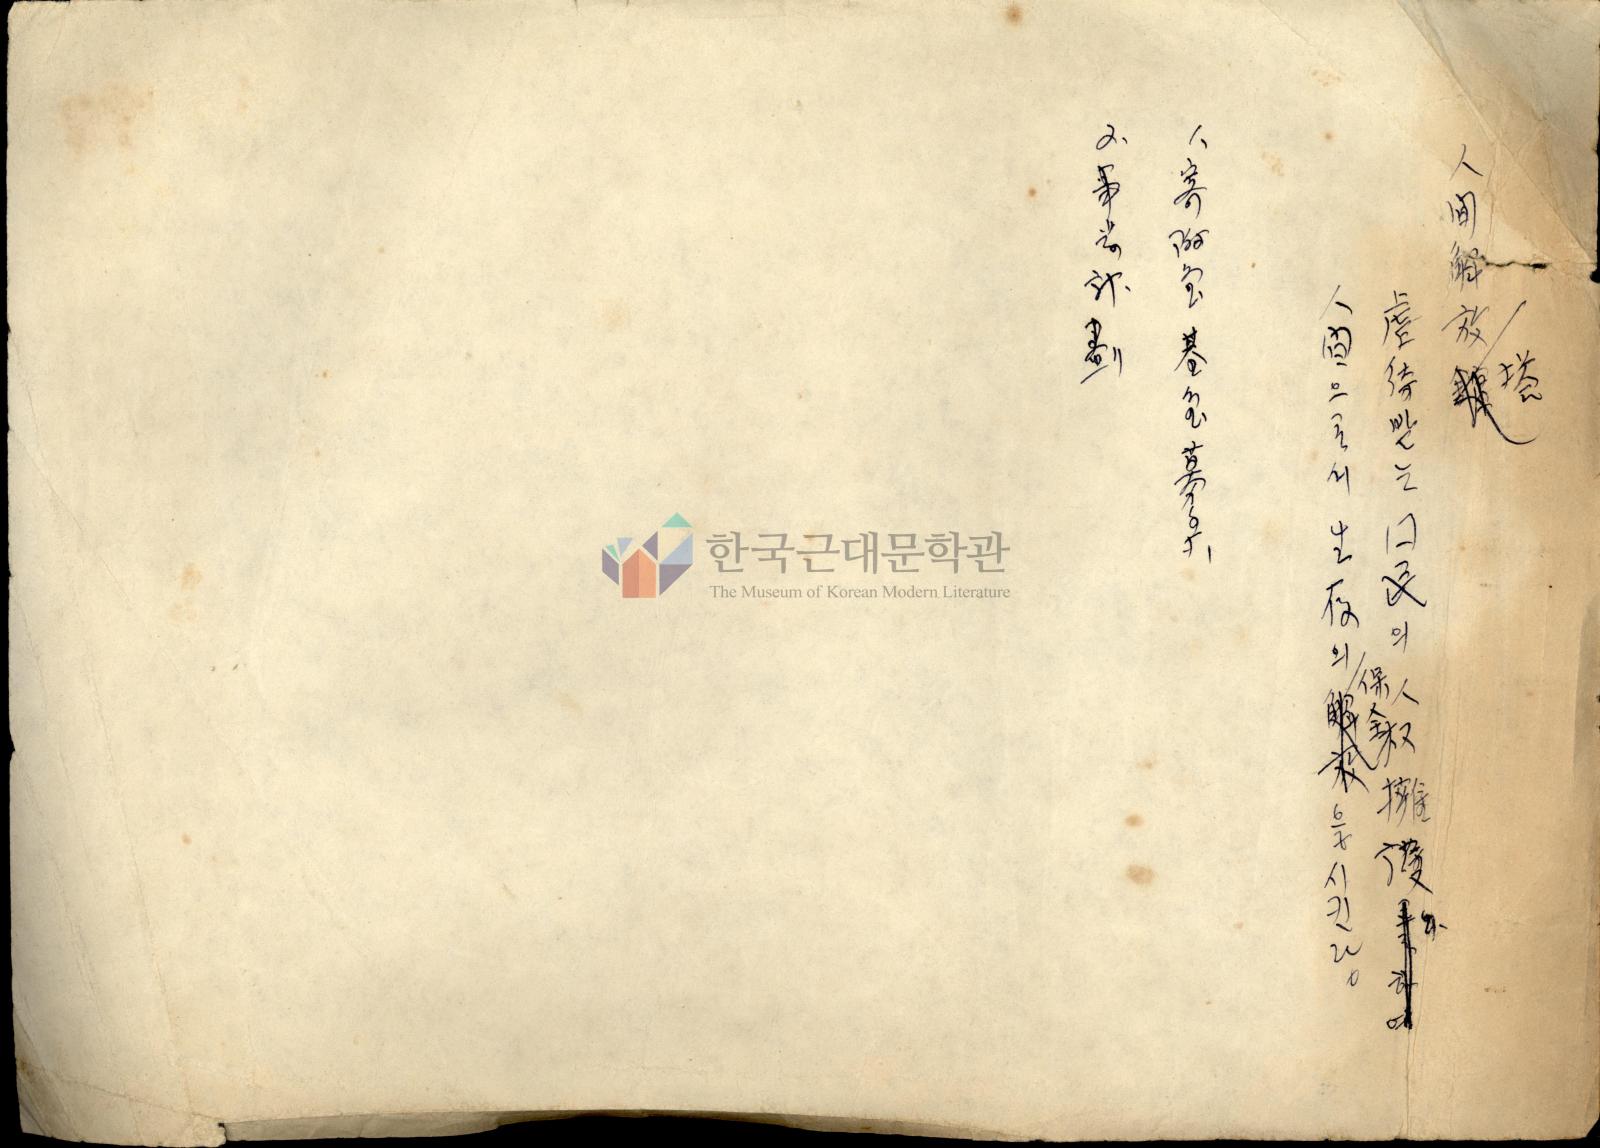 人間解放塔
虐待받는 囗民의 人权擁護와
人間으로서 生存의 保全을시킨다.
1, 寄附金 基金募集,
2. 事業計劃
한국근대문학관
The Museum of Korean Modern Literature